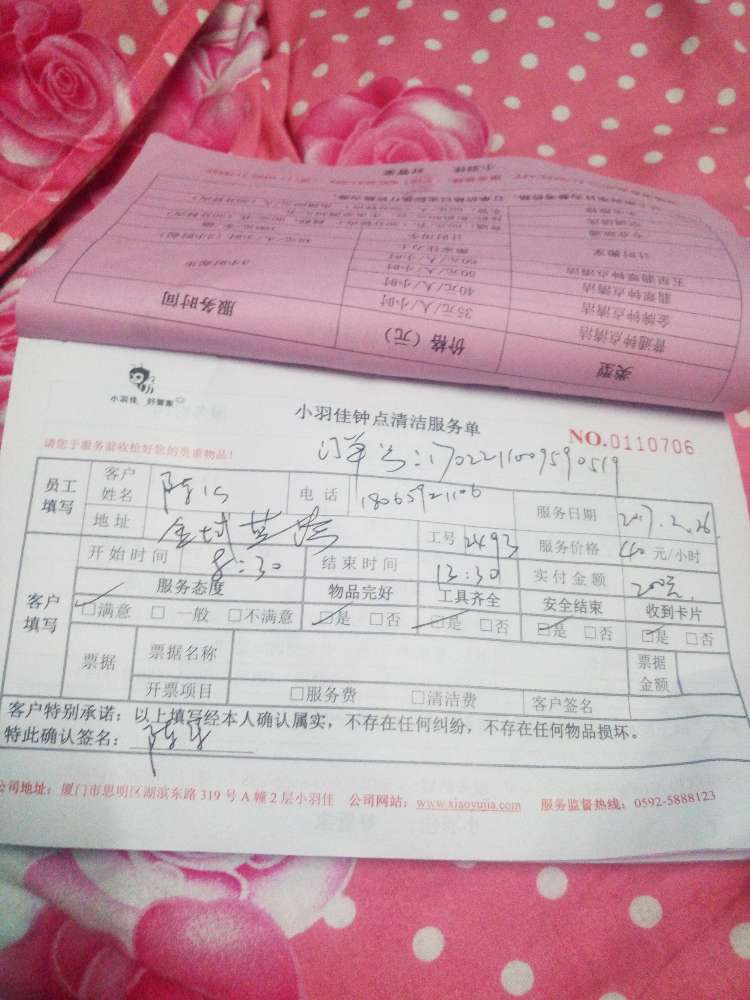 小羽佳 好管家
小羽佳钟点清洁服务单
NO.0110706
请您于服务前收检好您的贵重物品!
订单号:1702211009590519
员工填写 客户姓名 陈 电话 18065921106 服务日期 2017.2.26
地址 金域蓝湾 工号 2493 服务价格 40 元/小时
客户填写 开始时间 8:30 结束时间 13:30 实付金额 200元
服务态度 物品完好 工具齐全 安全结束 收到卡片
☑满意 □一般 □不满意 ☑是 □否 ☑是 □否 ☑是 □否 ☑是 □否
票据 票据名称 票据金额
开票项目 □服务费 □清洁费 客户签名
客户特别承诺:以上填写经本人确认属实,不存在任何纠纷,不存在任何物品损坏。
特此确认签名:陈
公司地址:厦门市思明区湖滨东路 319 号 A 幢 2 层小羽佳 公司网站:www.xiaoyujia.com 服务监督热线:0592-5888123
类型 价格(元) 服务时间
普通钟点清洁 35元/人/小时
金牌钟点清洁 40元/人/小时
翡翠钟点清洁 50元/人/小时
五星翡翠钟点清洁 60元/人/小时
计时搬家
小羽佳 好管家